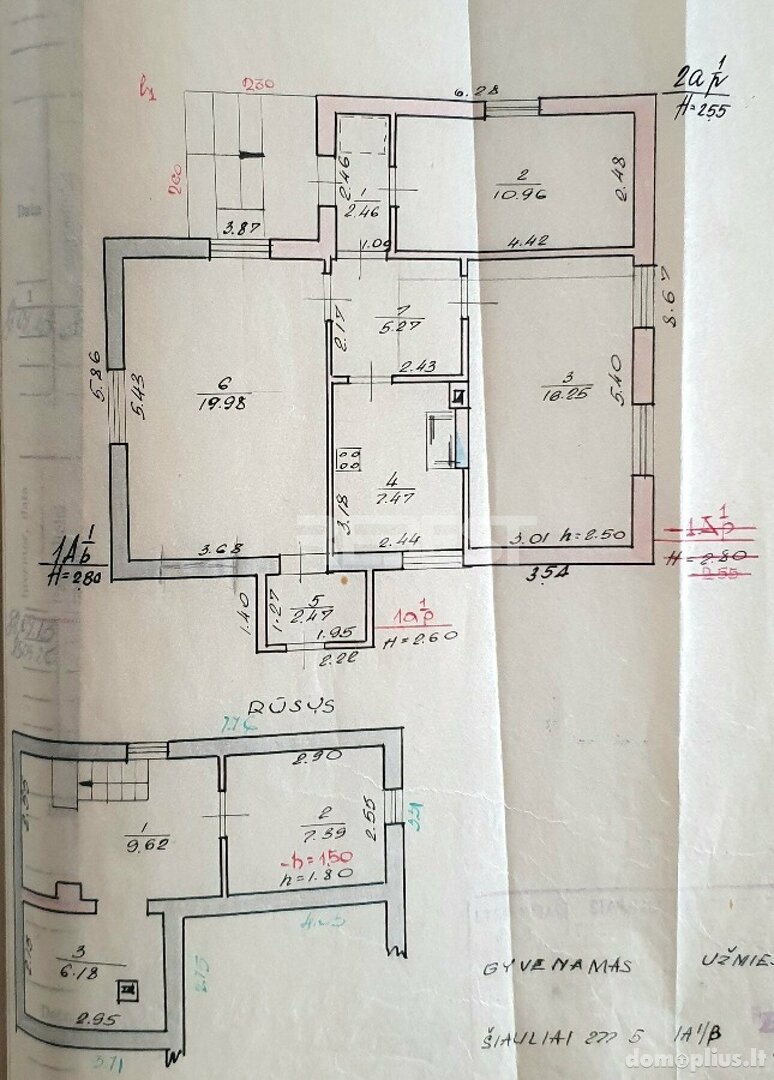 230
6.28
2a 1/p
H=2.55
200
2.46
1
2.46
1.09
2
10.96
2.48
4.42
3.87
8.67
5.86
5.43
6
19.98
2.17
7
5.27
2.43
3
16.25
5.40
4
7.47
3.18
2.44
3.68
3.01 h=2.50
3.54
1A 1/b
H=2.80
1A 1/p
H=2.80
2.55
1.40
1.27
5
2.47
1.95
2.22
1a 1/p
H=2.60
RŪSYS
2.90
1
9.62
2
7.39
2.55
-h=1.50
h=1.80
3
6.18
2.95
2.15
3.71
GYVENAMAS
ŠIAULIAI 277 5 1A1/β
domoplius.lt